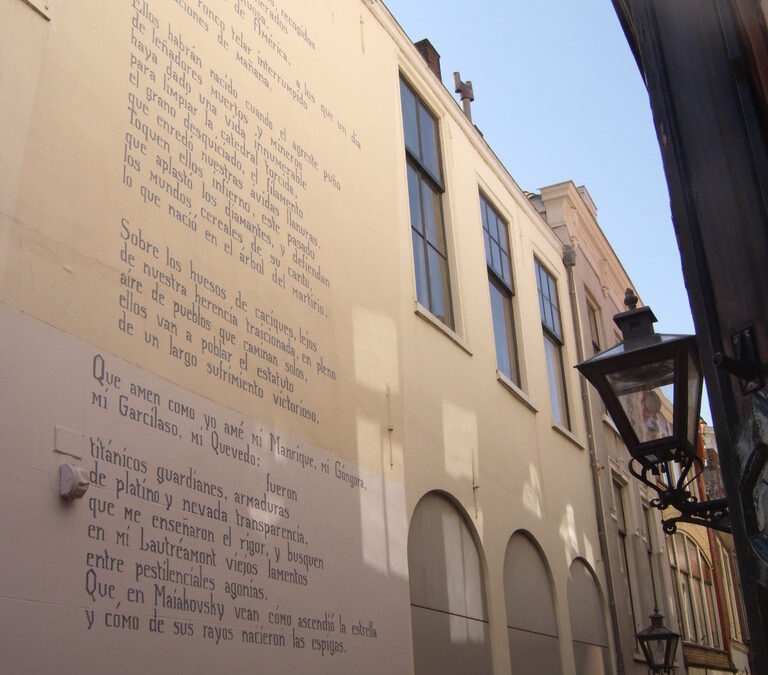 recogidos
de América, a los que un día
ronco telar interrumpido
de mañana.
Ellos habrán nacido cuando el agreste puño
de leñadores muertos y mineros
haya dado una vida innumerable
para limpiar la catedral torcida,
el grano desquiciado, el filamento
que enredó nuestras ávidas llanuras.
Toquen ellos infierno, este pasado
que aplastó los diamantes, y defiendan
los mundos cereales de su canto,
lo que nació en el árbol del martirio.
Sobre los huesos de caciques, lejos
de nuestra herencia traicionada, en pleno
aire de pueblos que caminan solos,
ellos van a poblar el estatuto
de un largo sufrimiento victorioso.
Que amen como yo amé mi Manrique, mi Góngora,
mi Garcilaso, mi Quevedo:
fueron
titánicos guardianes, armaduras
de platino y nevada transparencia,
que me enseñaron el rigor, y busquen
en mi Lautréamont viejos lamentos
entre pestilenciales agonías.
Que en Maiakovsky vean cómo ascendió la estrella
y cómo de sus rayos nacieron las espigas.